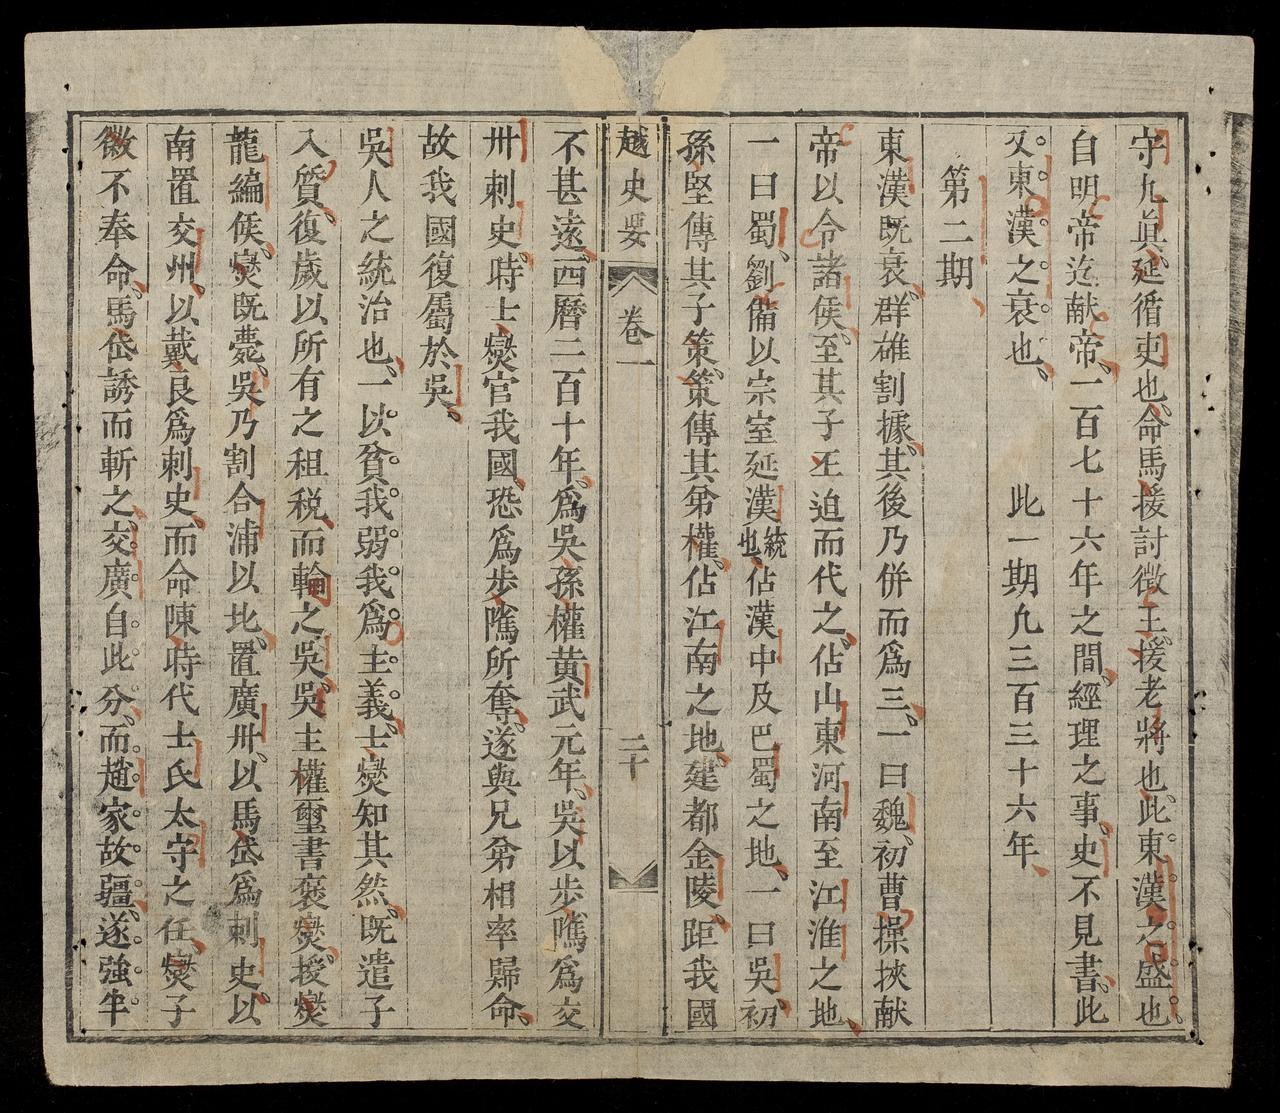 守九眞、延循吏也、命馬援討徵王、援老將也、此東漢之盛也。
自明帝迄献帝、一百七十六年之間、經理之事、史不見書、此
又東漢之衰也、　此一期凡三百三十六年、
第二期、
東漢既衰、群雄割據、其後乃併而爲三、一曰魏、初曹操挾献
帝以令諸侯、至其子丕迫而代之、佔山東河南至江淮之地、
一曰蜀、劉備以宗室延漢統也、佔漢中及巴蜀之地、一曰吳、初
孫堅傳其子策、策傳其弟權、佔江南之地、建都金陵、距我國
越史要　卷一　二十
不甚遠、西曆二百十年、爲吳孫權黄武元年、吳以步隲爲交
州刺史、時士燮官我國、恐爲步隲所奪、遂與兄弟相率歸命、
故我國復屬於吳、
吳人之統治也、一以貧我弱我爲主義、士燮知其然、既遣子
入質、復歲以所有之租税、而輪之吳、吳主權璽書褒燮、授燮
龍編侯、燮既薨、吳乃割合浦以北、置廣州、以馬岱爲刺史、以
南置交州、以戴良爲刺史、而命陳時代士氏太守之任、燮子
徽不奉命、馬岱誘而斬之、交廣自此分、而趙家故疆、遂強半